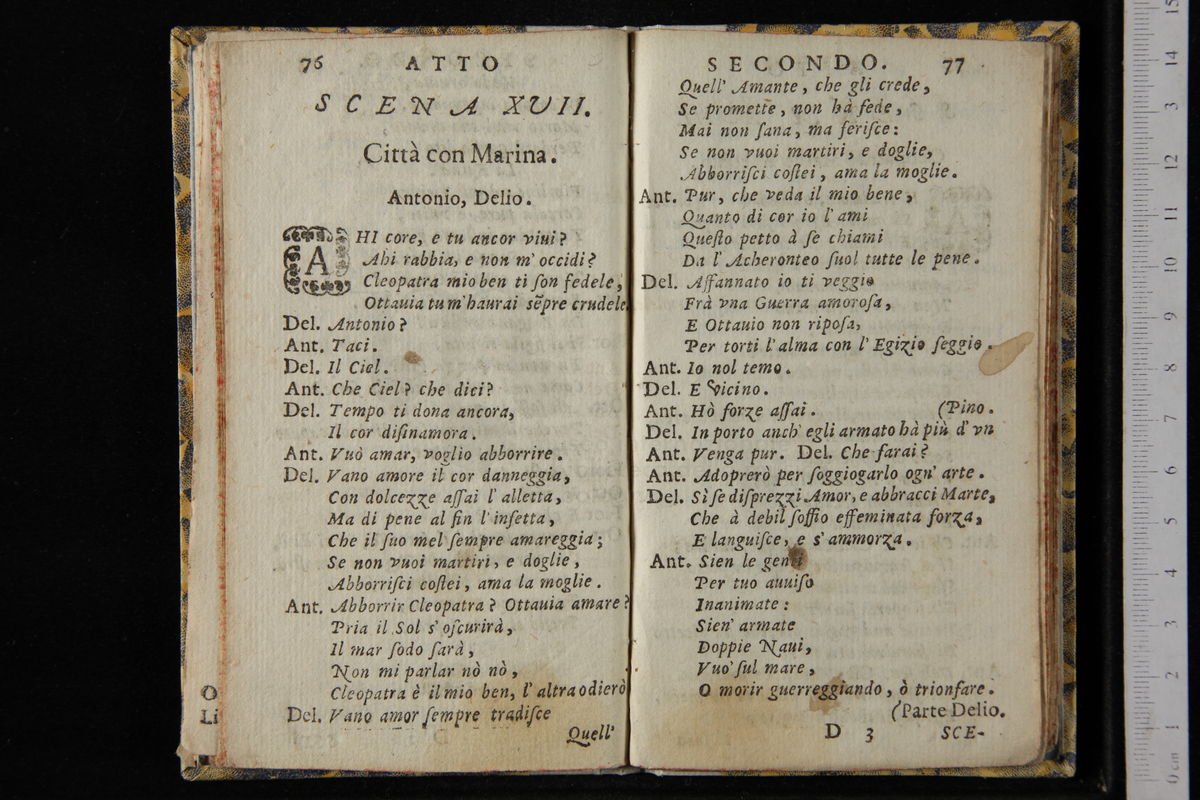 76 ATTO
SCENA XVII.
Città con Marina.
Antonio, Delio.
AHI core, e tu ancor viui?
Ahi rabbia, e non m' occidi?
Cleopatra mio ben ti ſon fedele,
Ottauia tu m'haurai sẽpre crudele.
Del. Antonio?
Ant. Taci.
Del. Il Ciel.
Ant. Che Ciel? che dici?
Del. Tempo ti dona ancora,
Il cor diſinamora.
Ant. Vuò amar, voglio abborrire.
Del. Vano amore il cor danneggia,
Con dolcezze aſſai l' alletta,
Ma di pene al fin l' infetta,
Che il ſuo mel ſempre amareggia;
Se non vuoi martiri, e doglie,
Abborriſci coſtei, ama la moglie.
Ant. Abborrir Cleopatra? Ottauia amare?
Pria il Sol s' oſcurirà,
Il mar ſodo ſarà,
Non mi parlar nò nò,
Cleopatra è il mio ben, l' altra odierò
Del. Vano amor ſempre tradiſce
Quell'
O
Li
SECONDO. 77
Quell' Amante, che gli crede,
Se promette, non hà fede,
Mai non ſana, ma feriſce:
Se non vuoi martiri, e doglie,
Abborriſci coſtei, ama la moglie.
Ant. Pur, che veda il mio bene,
Quanto di cor io l' ami
Queſto petto à ſe chiami
Da l' Acheronteo ſuol tutte le pene.
Del. Affannato io ti veggio
Frà vna Guerra amoroſa,
E Ottauio non ripoſa,
Per torti l' alma con l' Egizio ſeggio.
Ant. Io nol temo.
Del. E Vicino.
Ant. Hò forze aſſai. (Pino.
Del. In porto anch' egli armato hà più d' vn
Ant. Venga pur. Del. Che farai?
Ant. Adoprerò per ſoggiogarlo ogn' arte.
Del. Sì ſe diſprezzi Amor, e abbracci Marte,
Che à debil ſoffio effeminata forza,
E languiſce, e s' ammorza.
Ant. Sien le genti
Per tuo auuiſo
Inanimate:
Sien' armate
Doppie Naui,
Vuo' ſul mare,
O morir guerreggiando, ò trionfare.
(Parte Delio.
D 3 SCE-
15
14
13
12
11
10
9
8
7
6
5
4
3
2
1
0 cm